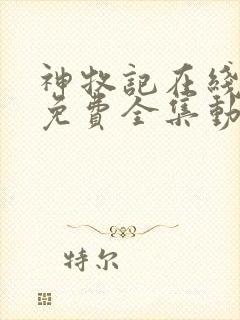 神牧記在綫
免費全集動
特尔